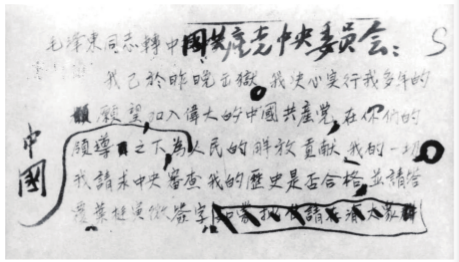 毛澤東同志轉中國共產党中央委員会：
我已於昨晚出獄。我决心实行我多年的
願望，加入偉大的中國共產党，在你們的
領導之下，為人民的解放貢献我的一切。
我請求中央審查我的歷史是否合格，並請答
覆。葉挺 寅微
中國